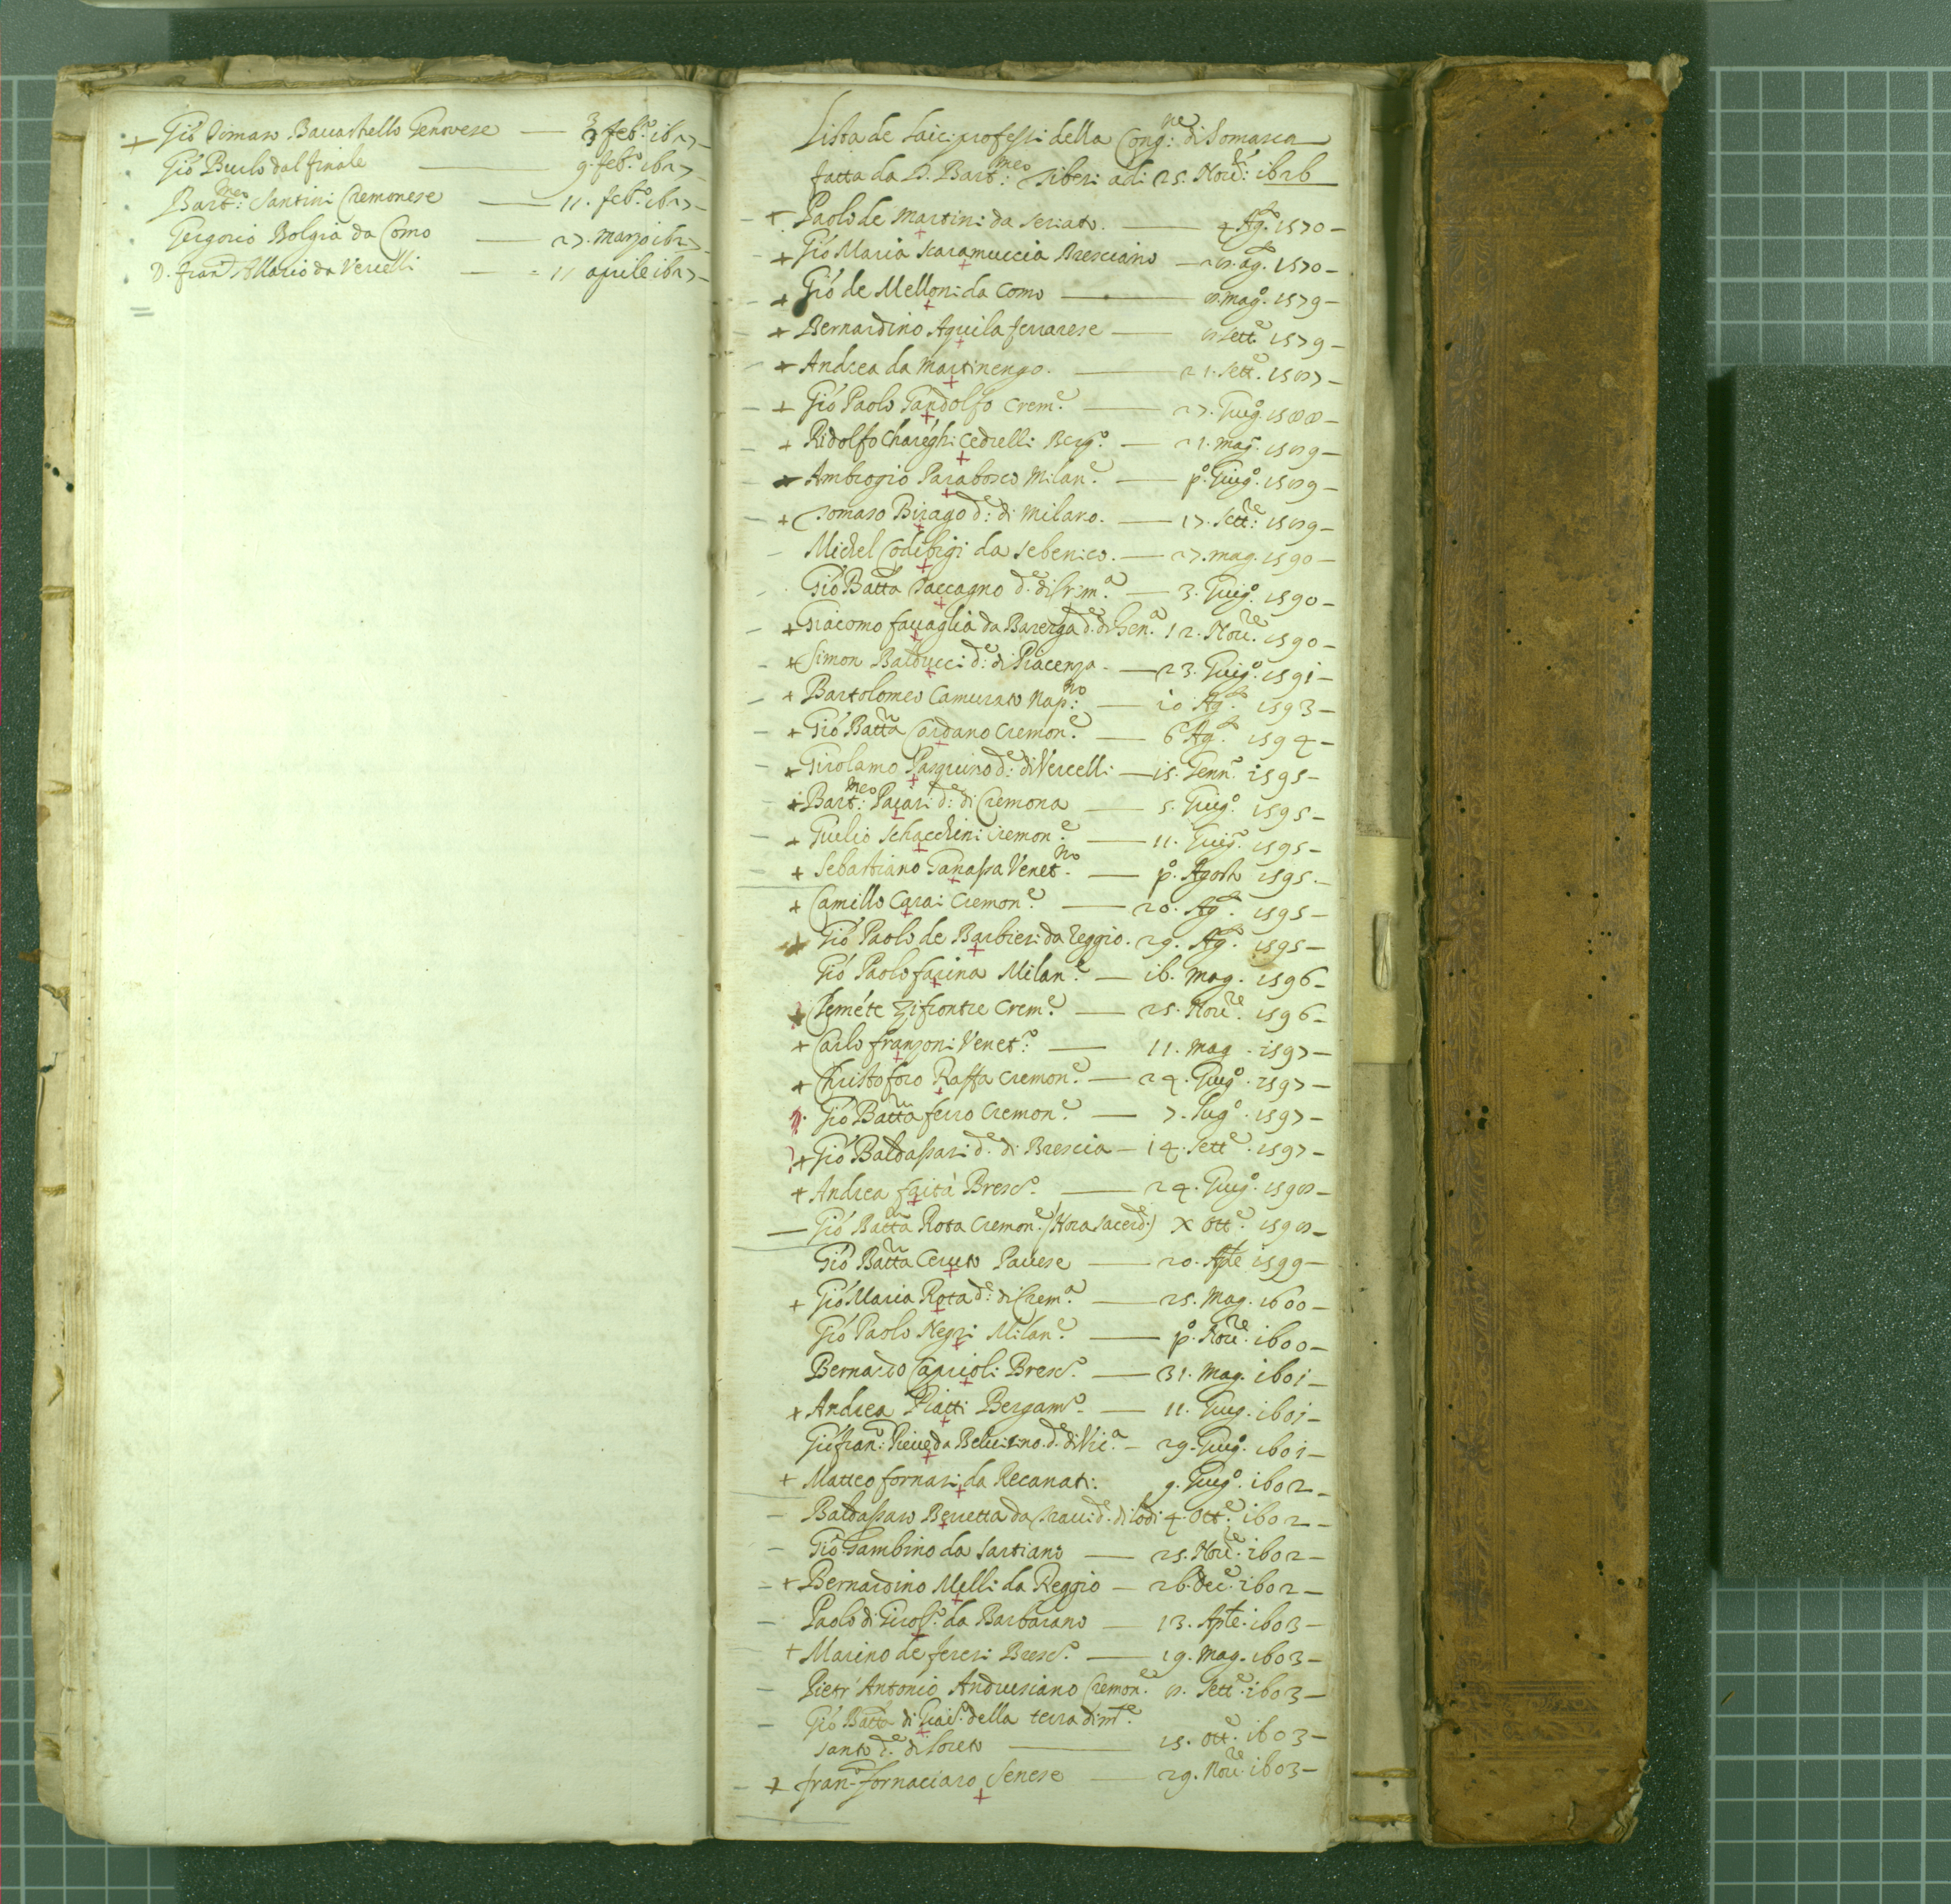 + Gio Tomaso Bacarhello Genovese — 3 feb.º 1627 –
Gio Burlo dal finale — 9. feb.º 1627
Bart.meo Santini Cremonese — 11. feb.º 1627 –
Gregorio Bolgia da Como — 27. marzo 1627
D. fran.º Allario da Vercelli — 11 aprile 1627 –
Lista de laici professi della Cong.ne di Somasca
fatta da D. Bart.meo Tiberi adi 25. Nov.e 1626
– + Paolo de Martini da Seriato. — 4 Ag.to 1570 –
– + Gio Maria Scaramuccia Bresciano — 28. ag.to 1570 –
– + Gio de Melloni da Como — 8. mag.º 1579 –
– + Bernardino Aquila ferrarese — 8 sett.e 1579 –
– + Andrea da Martinengo. — 21. sett.e 1587 –
– + Gio Paolo Gandolfo Crem.e — 27. Giug.º 1588 –
– + Ridolfo Chareghi Cedrelli Berg.º — 21. mag.º 1589 –
– + Ambrogio Parabosco Milan.e — p.º Giug.º 1589 –
– + Tomaso Birago d.e di Milano. — 17. sett.re 1589 –
– Michel Codibigi da Sebenico. — 27. mag. 1590 –
– Gio Batta Paccagno d.e di Crem.a — 3. Giug.º 1590 –
– + Giacomo favaglia da Barerga d.e di Gen.a 12. Nov.re 1590 –
– + Simon Balducci d.e di Piacenza. — 23. Giug.º 1591 –
– + Bartolomeo Camurato Nap.no — 10 Ag.to 1593 –
– + Gio Batta Cardano Cremon.e — 6 Ag.to 1594 –
– + Girolamo Pasquino d.e di Vercelli — 15. Genn.º 1595 –
– + Bart.meo Pacari d.e di Cremona — 5. Giug.º 1595 –
– + Giulio Schacchini Cremon.e — 11. Giug.º 1595 –
– + Sebastiano Ganassa Venet.no — p.º Agosto 1595. –
+ Camillo Carai Cremon.e — 20. Ag.to 1595 –
+ Gio Paolo de Barbieri da Reggio. 29. Ag.to 1595 –
Gio Paolo farina Milan.e — 16. mag. 1596 –
+ Zifrontre Crem.e — 25. Nov.re 1596 –
+ Carlo franzoni Venet.º — 11. mag. 1597 –
+ Christoforo Raffa Cremon.e — 24. Giug.º 1597 –
Gio Batta ferro Cremon.e — 7. lug.º 1597 –
+ Gio Baldassari d.e di Brescia — 14. sett.e 1597 –
+ Andrea faità Bresc.º — 24. Giug.º 1598 –
— Gio Batta Rota Cremon.e (Hora sacerd.e) X ott.e 1598 –
Gio Batta Ceruto Pavese — 20. Aple 1599 –
+ Gio Maria Rota d.e di Crem.a — 25. mag. 1600 –
Gio Paolo Negri Milan.e — p.º Nov.re 1600 –
Bernardo Caprioli Bresc.º — 31. mag. 1601 –
+ Andrea Piatti Bergam.º — 11. Giug. 1601 –
Gio fran.º Pieve da d.e di Vic.a – 29. Giug.º 1601 –
+ Matteo fornari da Recanati. 9. Giug.º 1602 –
– Baldassaro Beretta da d.e di Lodi 4. ott.e 1602 –
– Gio Gambino da Sartiano — 25. Nov.re 1602 –
– + Bernardino Melli da Reggio — 26. dec.e 1602 –
– Paolo di Girol.º da Barbarano — 13. Aple. 1603 –
+ Marino de fereri Bresc.º — 19. mag. 1603 –
– Pietr' Antonio Andrusiano Cremon.e 8. sett.e 1603 –
– Gio Batta di Giac.º della terra di m.te
santo d.e di Loreto — 15. ott.e 1603 –
– + fran.º fornaciaro Senese — 29. Nov.re 1603 –